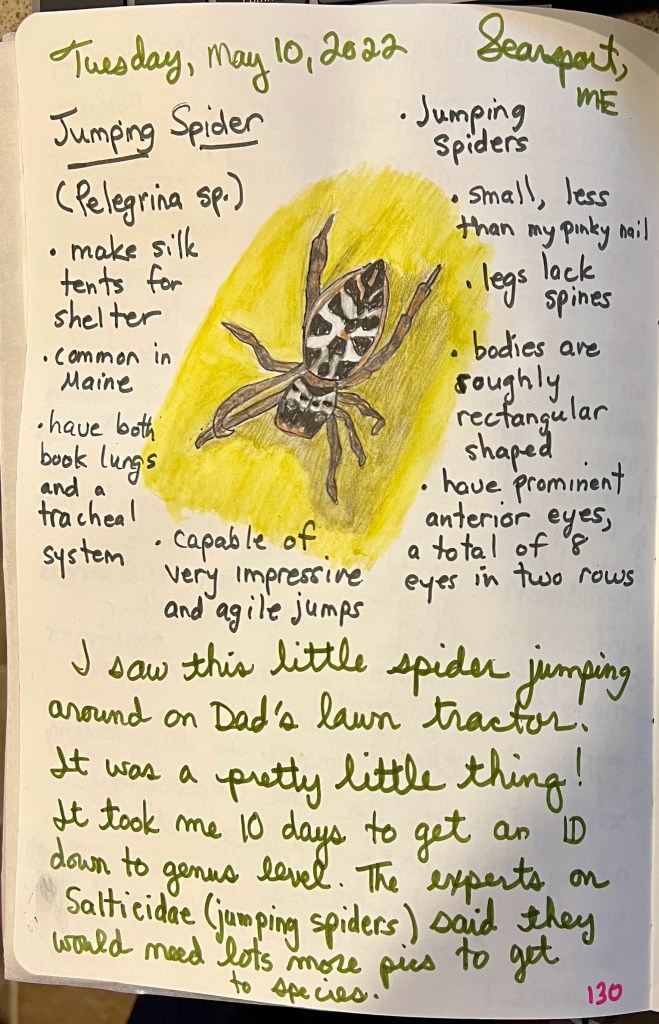 Tuesday, May 10, 2022
Searsport,
ME
Jumping Spider
(Pelegrina sp.)
• make silk
tents for
shelter
• common in
Maine
• have both
book lungs
and a
tracheal
system
• capable of
very impressive
and agile jumps
• Jumping
Spiders
• small, less
than my pinky nail
• legs lack
spines
• bodies are
roughly
rectangular
shaped
• have prominent
anterior eyes,
a total of 8
eyes in two rows
I saw this little spider jumping
around on Dad's lawn tractor.
It was a pretty little thing!
It took me 10 days to get an ID
down to genus level. The experts on
Salticidae (jumping spiders) said they
would need lots more pics to get
to species.
130